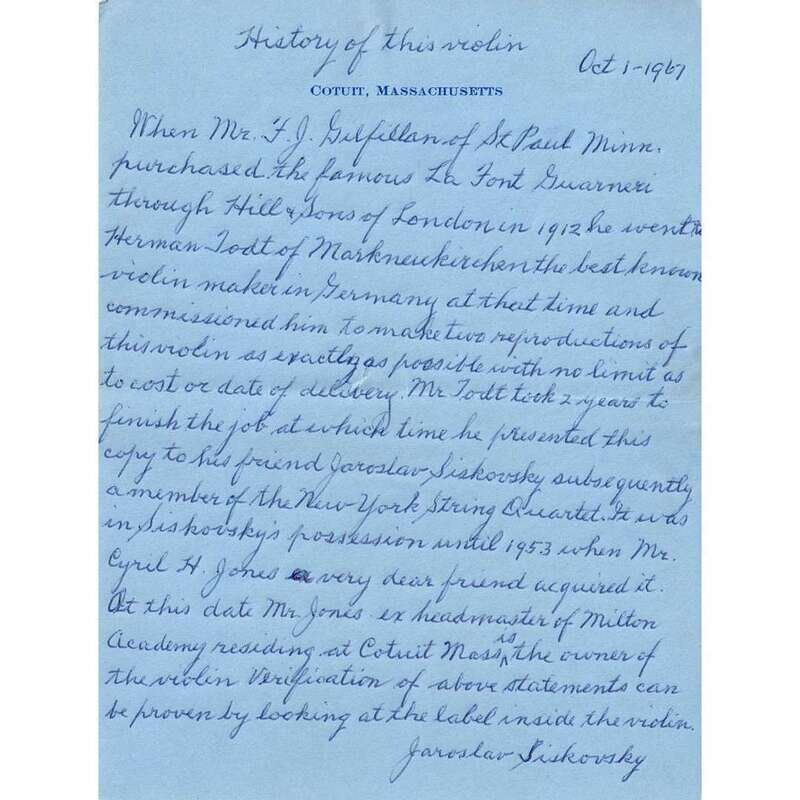 History of this violin
Oct 1-1967
COTUIT, MASSACHUSETTS
When Mr. F. J. Gilfillan of St Paul Minn.
purchased the famous La Font Guarneri
through Hill & Sons of London in 1912 he went to
Herman Todt of Markneukirchen the best known
violin maker in Germany at that time and
commissioned him to make two reproductions of
this violin as exactly as possible with no limit as
to cost or date of delivery. Mr Todt took 2 years to
finish the job at which time he presented this
copy to his friend Jaroslav Siskovsky subsequently
a member of the New York String Quartet. It was
in Siskovsky's possession until 1953 when Mr.
Cyril H. Jones a very dear friend acquired it.
At this date Mr. Jones ex headmaster of Milton
Academy residing at Cotuit Mass is the owner of
the violin Verification of above statements can
be proven by looking at the label inside the violin.
Jaroslav Siskovsky